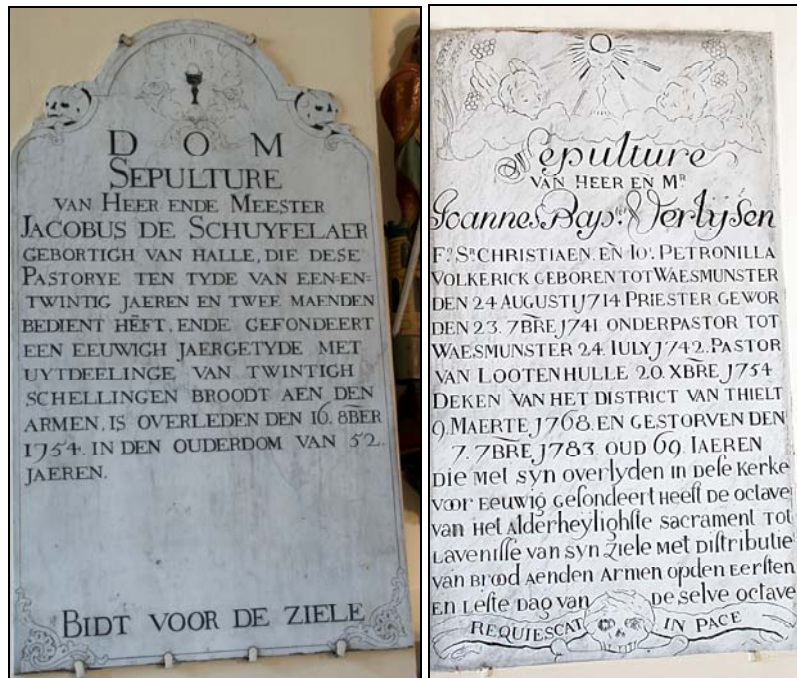 D O M
SEPULTURE
VAN HEER ENDE MEESTER
JACOBUS DE SCHUYFELAER
GEBORTIGH VAN HALLE, DIE DESE
PASTORYE TEN TYDE VAN EEN=EN=
TWINTIG JAEREN EN TWEE MAENDEN
BEDIENT HEFT, ENDE GEFONDEERT
EEN EEUWIGH JAERGETYDE MET
UYTDEELINGE VAN TWINTIGH
SCHELLINGEN BROODT AEN DEN
ARMEN, IS OVERLEDEN DEN 16. 8BER
1754. IN DEN OUDERDOM VAN 52.
JAEREN.
BIDT VOOR DE ZIELE
Sepulture
VAN HEER EN MR
Joannes Bap.te Verlijsen
FS SR CHRISTIAEN. EN IOE PETRONILLA
VOLKERICK GEBOREN TOT WAESMUNSTER
DEN 24 AUGUSTI 1714 PRIESTER GEWOR
DEN 23. 7BRE 1741 ONDERPASTOR TOT
WAESMUNSTER 24. IULY 1742. PASTOR
VAN LOOTENHULLE 20. XBRE 1754
DEKEN VAN HET DISTRICT VAN THIELT
9. MAERTE 1768. EN GESTORVEN DEN
7. 7BRE 1783. OUD 69. IAEREN
Die Met syn overlyden in deſe Kerke
voor eeuwig gefondeert Heeft De octave
van Het Alderheylighſte sacrament Tot
Laveniſſe van syn Ziele Met Diſtributie
van Brood Aenden Armen opden Eerſten
En Leſte Dag van De selve octave
REQUIESCAT IN PACE